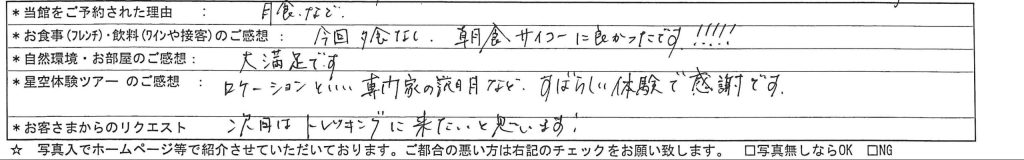 *当館をご予約された理由 : 月食など.
*お食事(フレンチ)・飲料(ワインや接客)のご感想: 今回夕食なし. 朝食サイコーに良かったです!!!!!
*自然環境・お部屋のご感想: 大満足です
*星空体験ツアー のご感想 : ロケーションといい専門家の説明など. すばらしい体験で感謝です.
*お客さまからのリクエスト 次回は トレッキングに来たいと思います!
☆ 写真入でホームページ等で紹介させていただいております。ご都合の悪い方は右記のチェックをお願い致します。 □写真無しならOK □NG